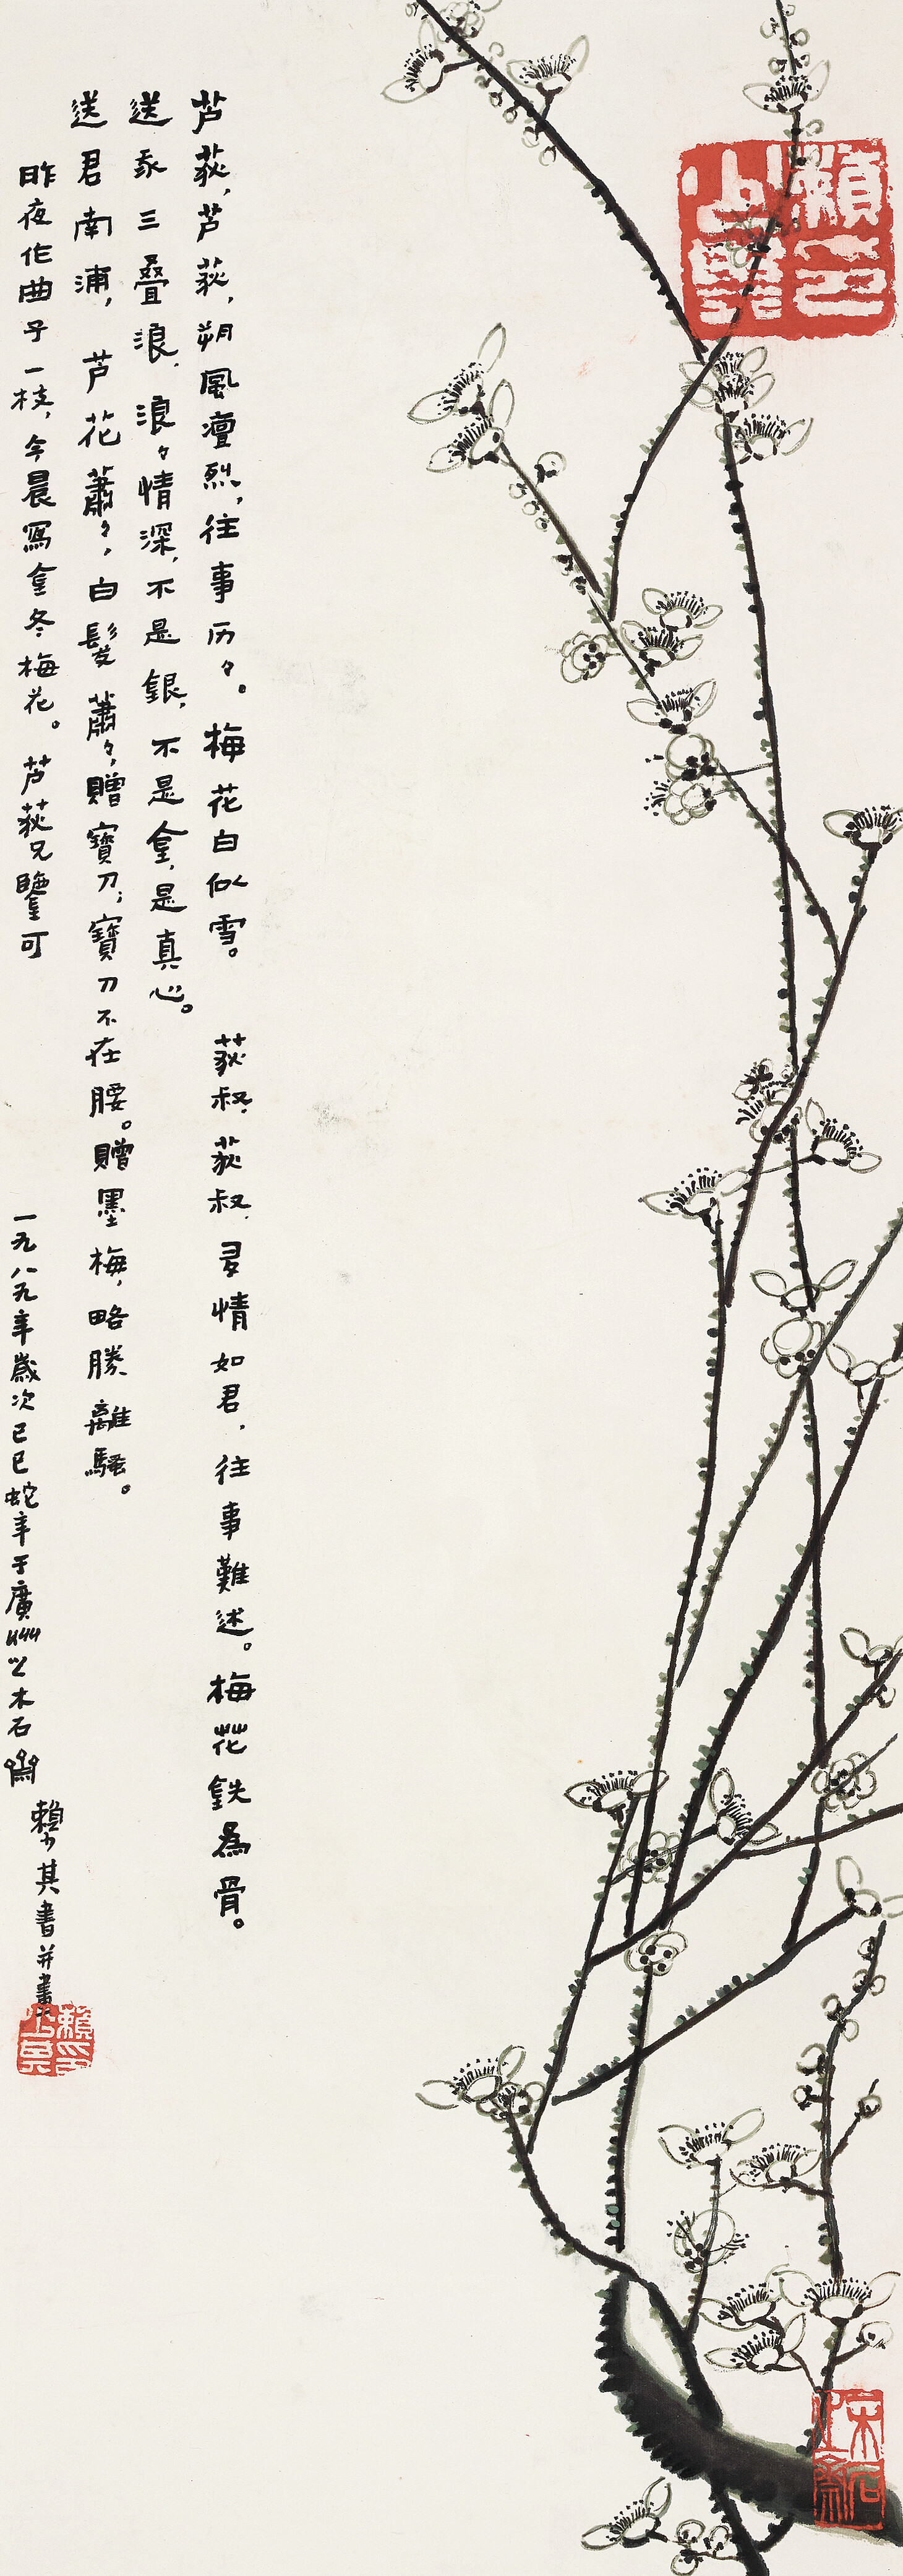 芦荻，芦荻，朔風凜烈，往事历々。梅花白似雪。 荻叔，荻叔，多情如君，往事難述。梅花鉄為骨。
送豕三叠浪，浪々情深，不是銀，不是金，是真心。
送君南浦，芦花蕭々，白髮蕭々，贈寶刀，寶刀不在腰。贈墨梅，略勝離騷。
昨夜作曲子一枝，今晨寫金冬梅花。芦荻兄鑒可
一九八九年歲次己巳蛇年于廣州以木石齋
賴少其書并畫